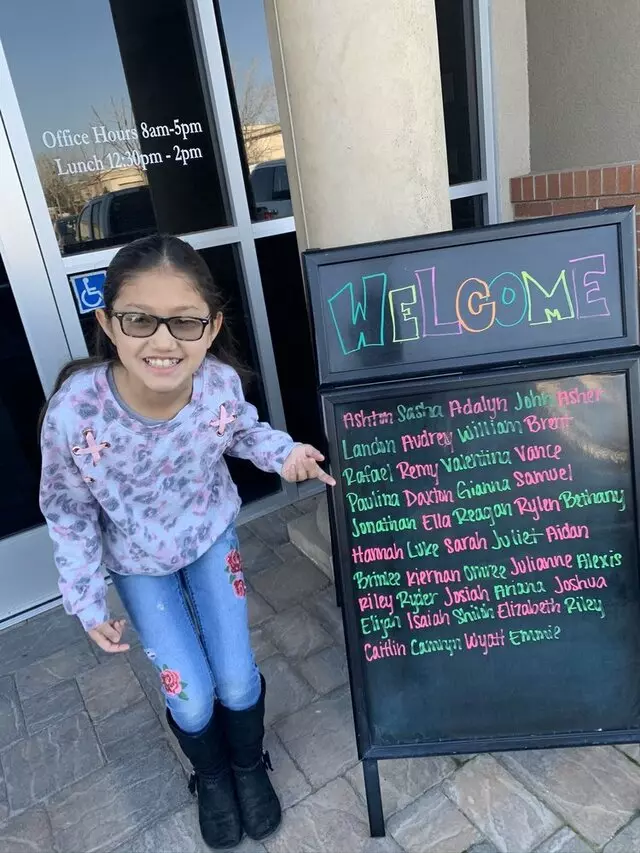 Office Hours 8am-5pm
Lunch 12:30pm - 2pm
WELCOME
Ashton Sasha Adalyn John Asher
Landon Audrey William Brett
Rafael Remy Valentina Vance
Paulina Daxton Gianna Samuel
Jonathan Ella Reagan Rylen Bethany
Hannah Luke Sarah Juliet Aidan
Brinlee Kiernan Julianne Alexis
Riley Ryder Josiah Ariana Joshua
Elijah Isaiah Shiloh Elizabeth Riley
Caitlin Camryn Wyatt Emmie